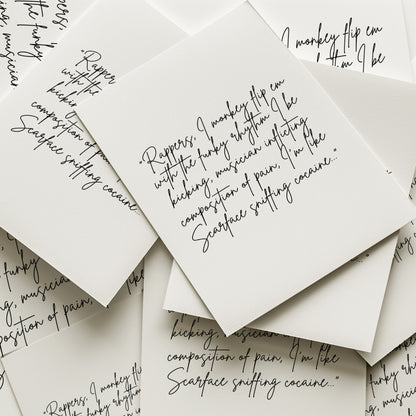 Rappers,
the funky
musician
"Rappers,
with the
kicking,
composition of pain,
Scarface sniffing cocaine
I monkey flip em
I be
"Rappers, I monkey flip em
with the funky rhythm I be
kicking, musician inflicting
composition of pain, I'm like
Scarface sniffing cocaine..."
funky
kicking, musician
kicking, musician
composition of pain, I'm like
Scarface sniffing cocaine..."
"Rappers, I monkey
the funky rhythm